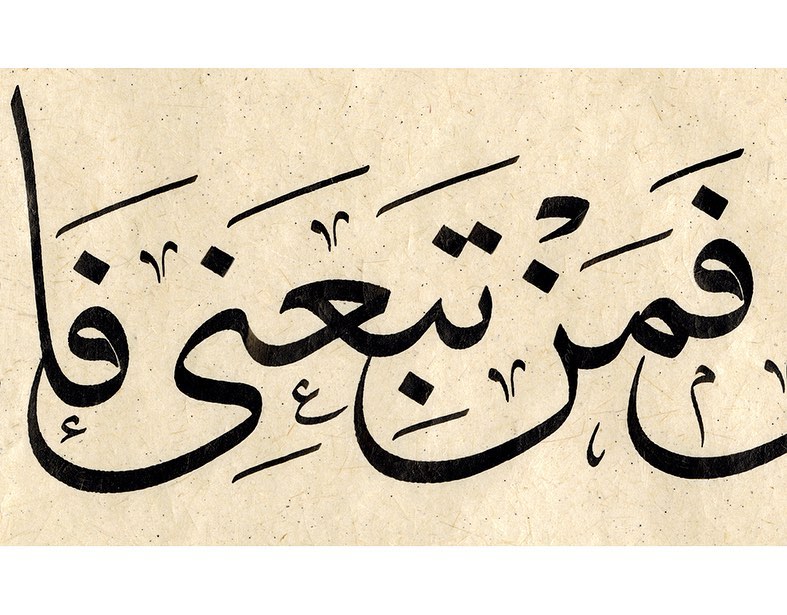 فَمَنْ تَبِعَنِى فَإ